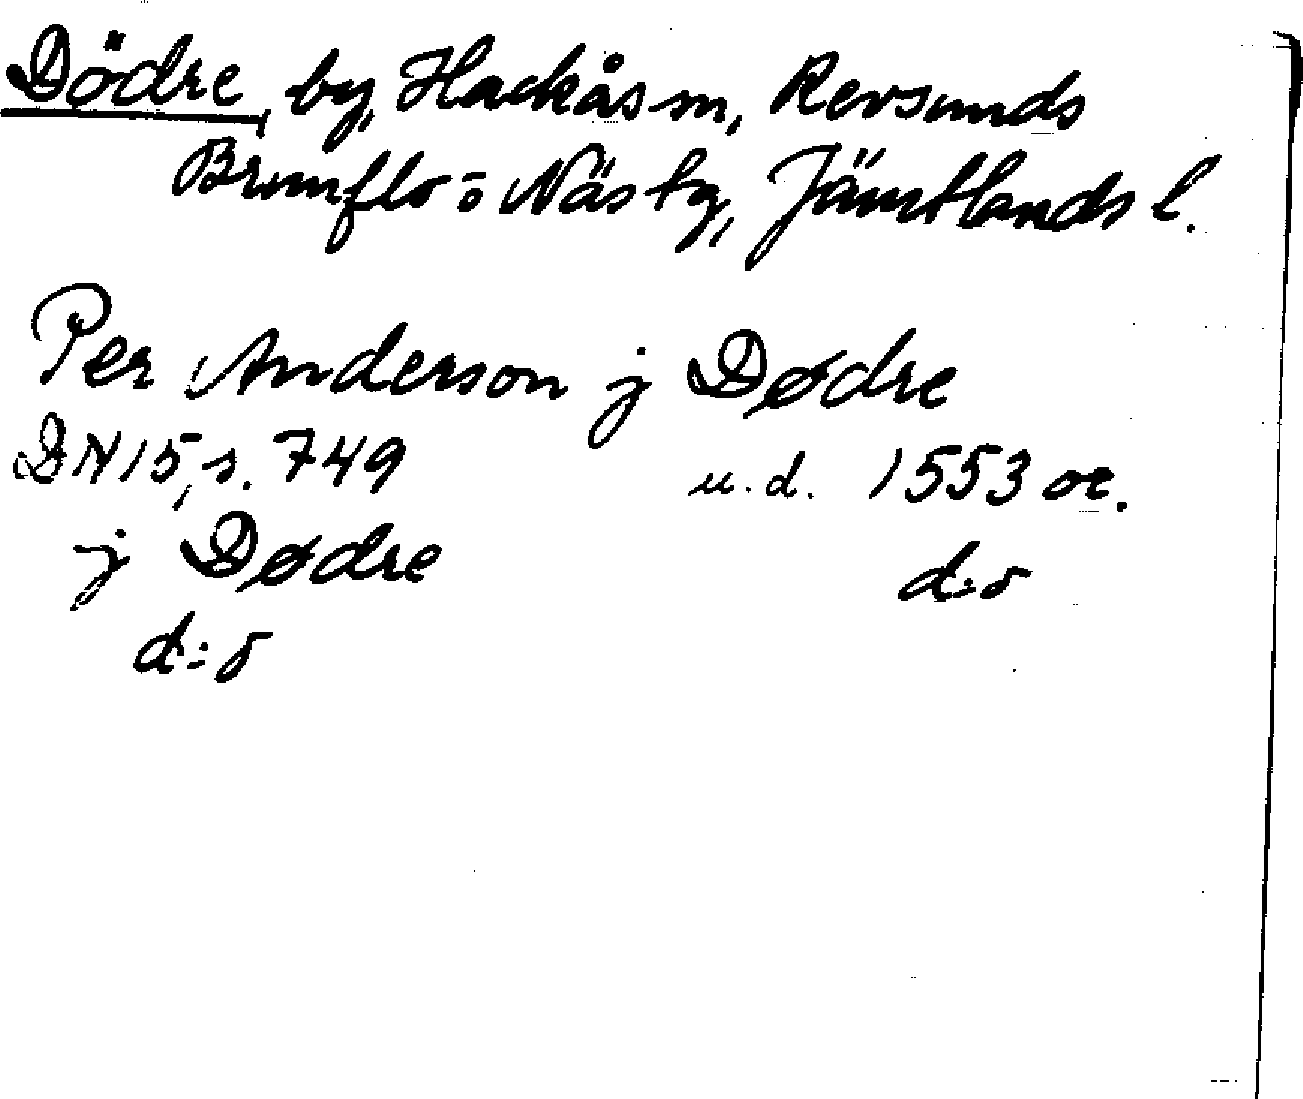 Dödre, by, Hackås sn, Revsunds
Brunflo o Näs tg, Jämtlands l.
Per Anderson j Dødre
DN 15, s. 749 u.d. 1553 or.
j Dødre d:o
d:o